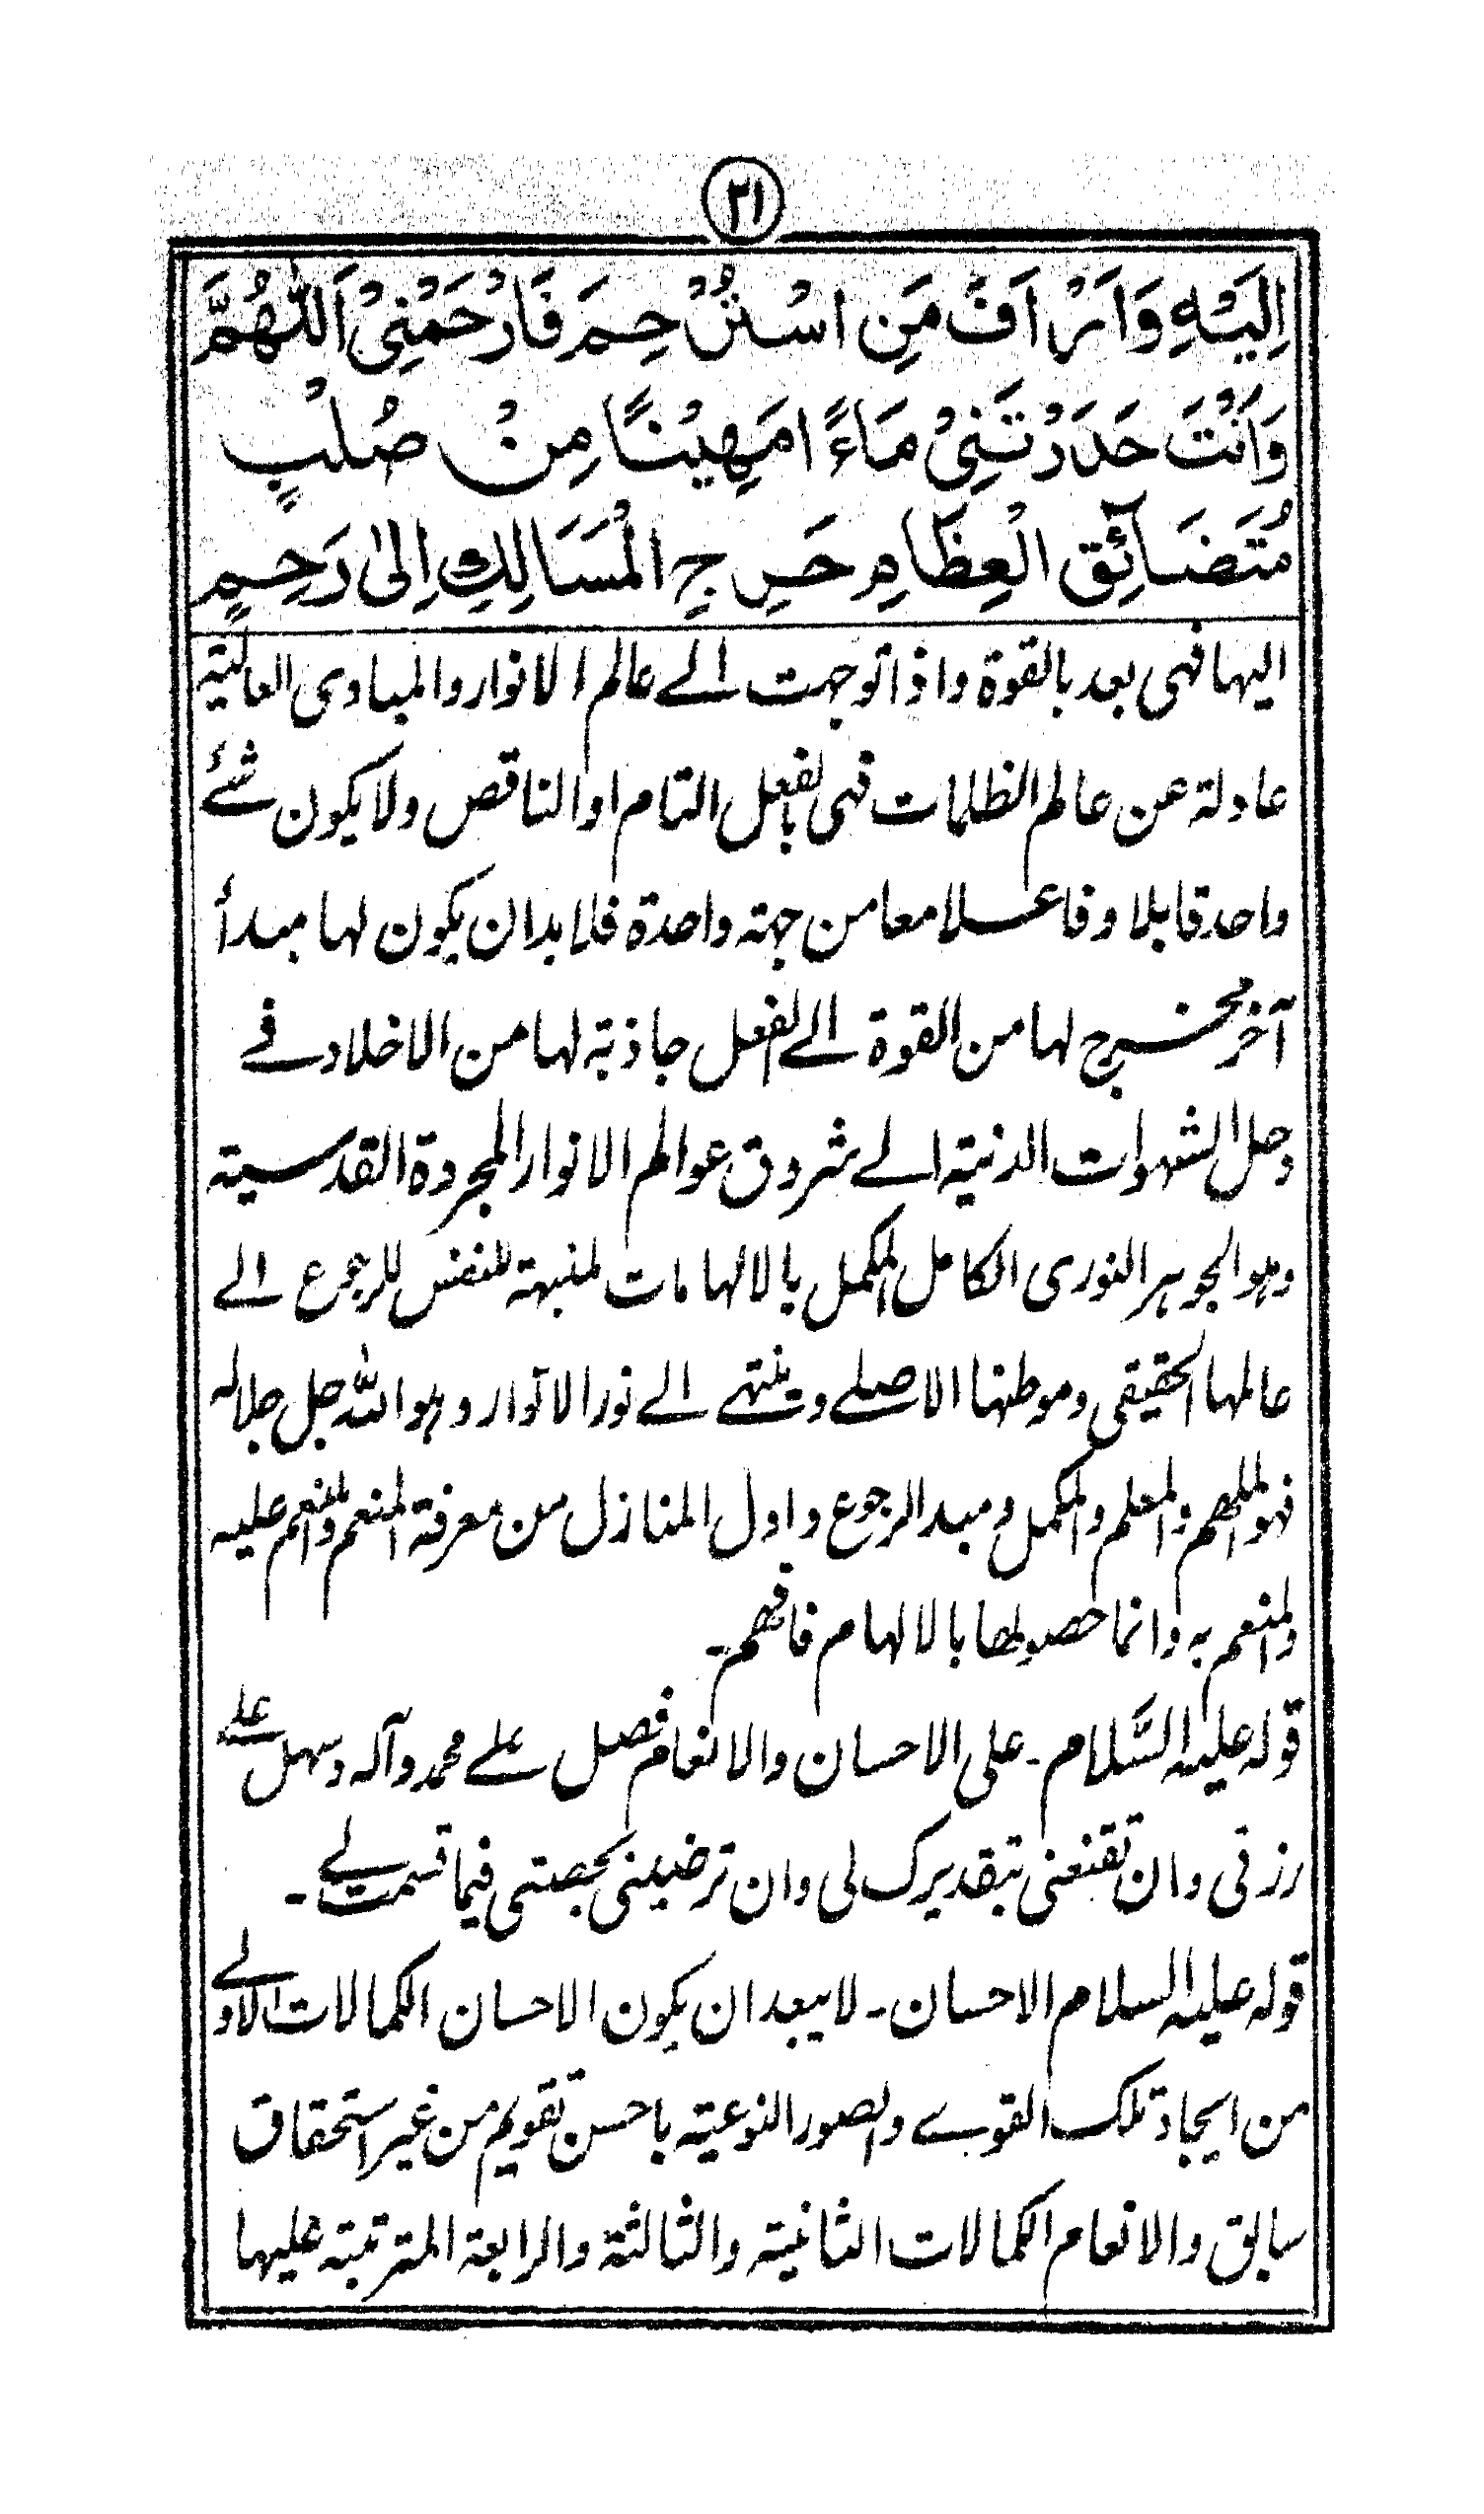 ٢١
اِلَيْهِ وَاَرْاَفَ مَنِ اسْتُرْحِمَ فَارْحَمْنِيْ اَللّٰهُمَّ
وَاَنْتَ حَدَرْتَنِيْ مَاءً امَهِيْنًا مِنْ صُلْبٍ
مُتَضَائِقِ الْعِظَامِ حَرِجِ الْمَسَالِكِ اِلٰى رَحِمٍ
اليها فهى بعد بالقوة واذا توجهت الے عالم الانوار والمبادى العالية
عادلة عن عالم الظلمات فهى بالفعل التام او الناقص ولا يكون شئ
واحد قابلا وفاعلا معا من جهة واحدة فلا بد ان يكون لها مبدأ
آخر مخرج لها من القوة الے الفعل جاذبة لها من الاخلاد فے
وحل الشهوات الدنية الے شروق عوالم الانوار المجردة القدسية
وهو الجوهر النورى الكامل المكمل بالالهامات لمنبهة للنفس للرجوع الے
عالمها الحقيقى وموطنها الاصلے وينتهے الے نور الانوار وهو اللّٰه جل جلاله
فهو الملهم والمعلم والمكمل ومبدا الرجوع واول المنازل من معرفة المنعم والمنعم عليه
والمنعم به وانما حصولها بالالهام فافهم۔
قوله عليه السَّلام۔ على الاحسان والانعام فصل علے محمد وآله وسهل علے
رزقى وان تقنعنى بتقديرك لى وان ترضينى بحصتى فيما قسمت لے۔
قوله عليه السلام الاحسان۔ لا يبعد ان يكون الاحسان الكمالات الاولے
من ايجاد تلك القوے والصور النوعية باحسن تقويم من غير استحقاق
سابق والانعام الكمالات الثانية والثالثة والرابعة المترتبة عليها